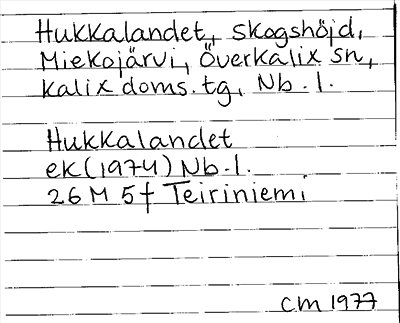 Hukkalandet, skogshöjd,
Miekojärvi, Överkalix sn,
kalix doms. tg, Nb.l.
Hukkalandet
ek (1974) Nb.l.
26 M 5 f Teiriniemi
CM 1977